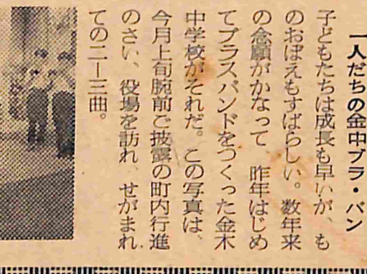 一人だちの金中ブラ・バン
子どもたちは成長も早いが、も
のおぼえもすばらしい。数年来
の念願がかなって　昨年はじめ
てブラスバンドをつくった金木
中学校がそれだ。この写真は、
今月上旬腕前ご披露の町内行進
のさい、役場を訪れ、せがまれ
ての二ー三曲。